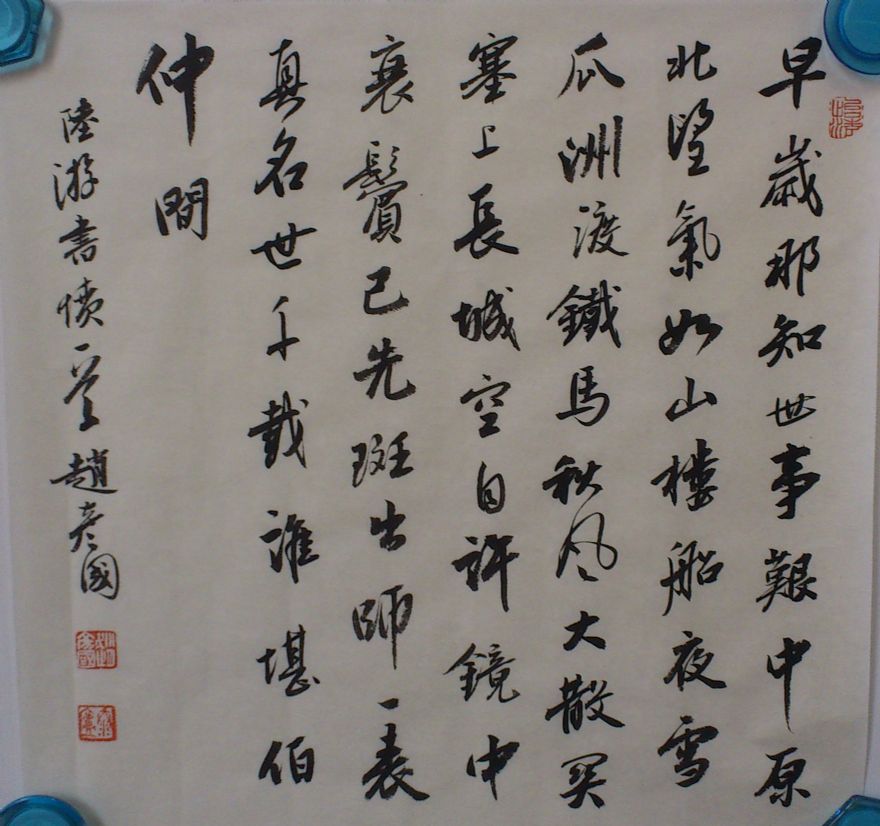 早歲那知世事艱中原
北望氣如山樓船夜雪
瓜洲渡鐵馬秋风大散関
塞上長城空自許鏡中
衰鬢已先斑出師一表
真名世千載誰堪伯
仲間
陸游書憤一首趙彦國